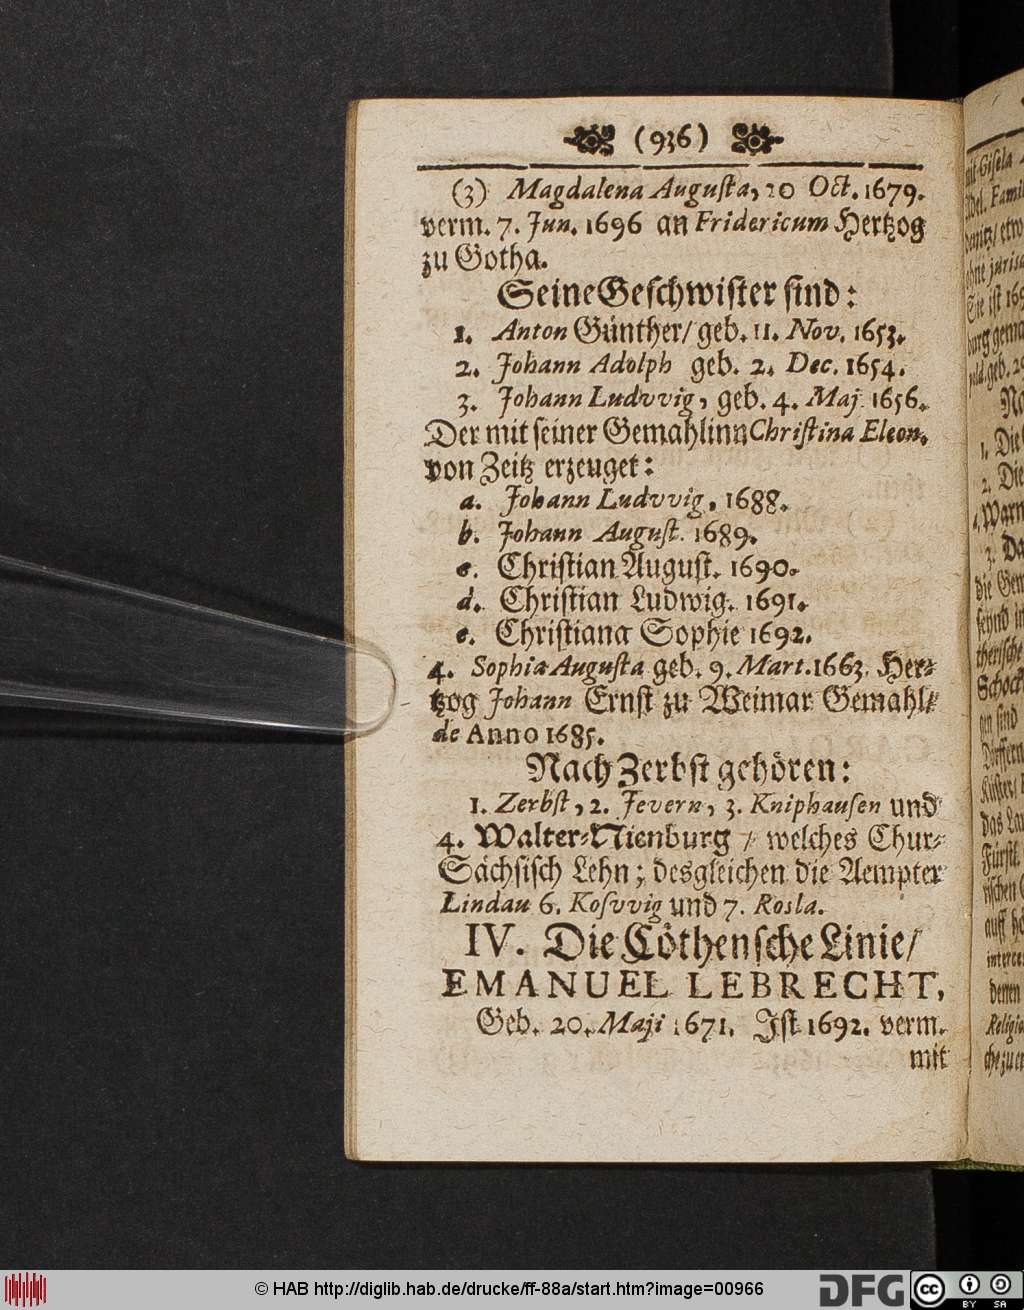 (936)
(3) Magdalena Augusta, 20 Oct. 1679.
verm. 7. Jun. 1696 an Fridericum Hertzog
zu Gotha.
Seine Geschwister sind:
1. Anton Günther/ geb. 11. Nov. 1653.
2. Johann Adolph geb. 2. Dec. 1654.
3. Johann Ludvvig, geb. 4. Maj. 1656.
Der mit seiner Gemahlinn Christina Eleon.
von Zeitz erzeuget:
a. Johann Ludvvig, 1688.
b. Johann August. 1689.
c. Christian August. 1690.
d. Christian Ludwig. 1691.
e. Christiana Sophie 1692.
4. Sophia Augusta geb. 9. Mart. 1663. Her-
tzog Johann Ernst zu Weimar Gemahl/
de Anno 1685.
Nach Zerbst gehören:
1. Zerbst, 2. Jevern, 3. Kniphausen und
4. Walter-Nienburg / welches Chur-
Sächsisch Lehn; desgleichen die Aempter
Lindau 6. Kosvvig und 7. Rosla.
IV. Die Cöthensche Linie/
EMANUEL LEBRECHT,
Geb. 20. Maji 1671. Ist 1692. verm.
mit
© HAB http://diglib.hab.de/drucke/ff-88a/start.htm?image=00966
DFG
cc
BY SA